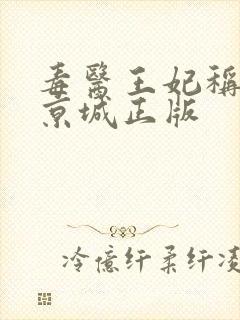 毒醫王妃稱
京城正版
冷億纤柔纤凌